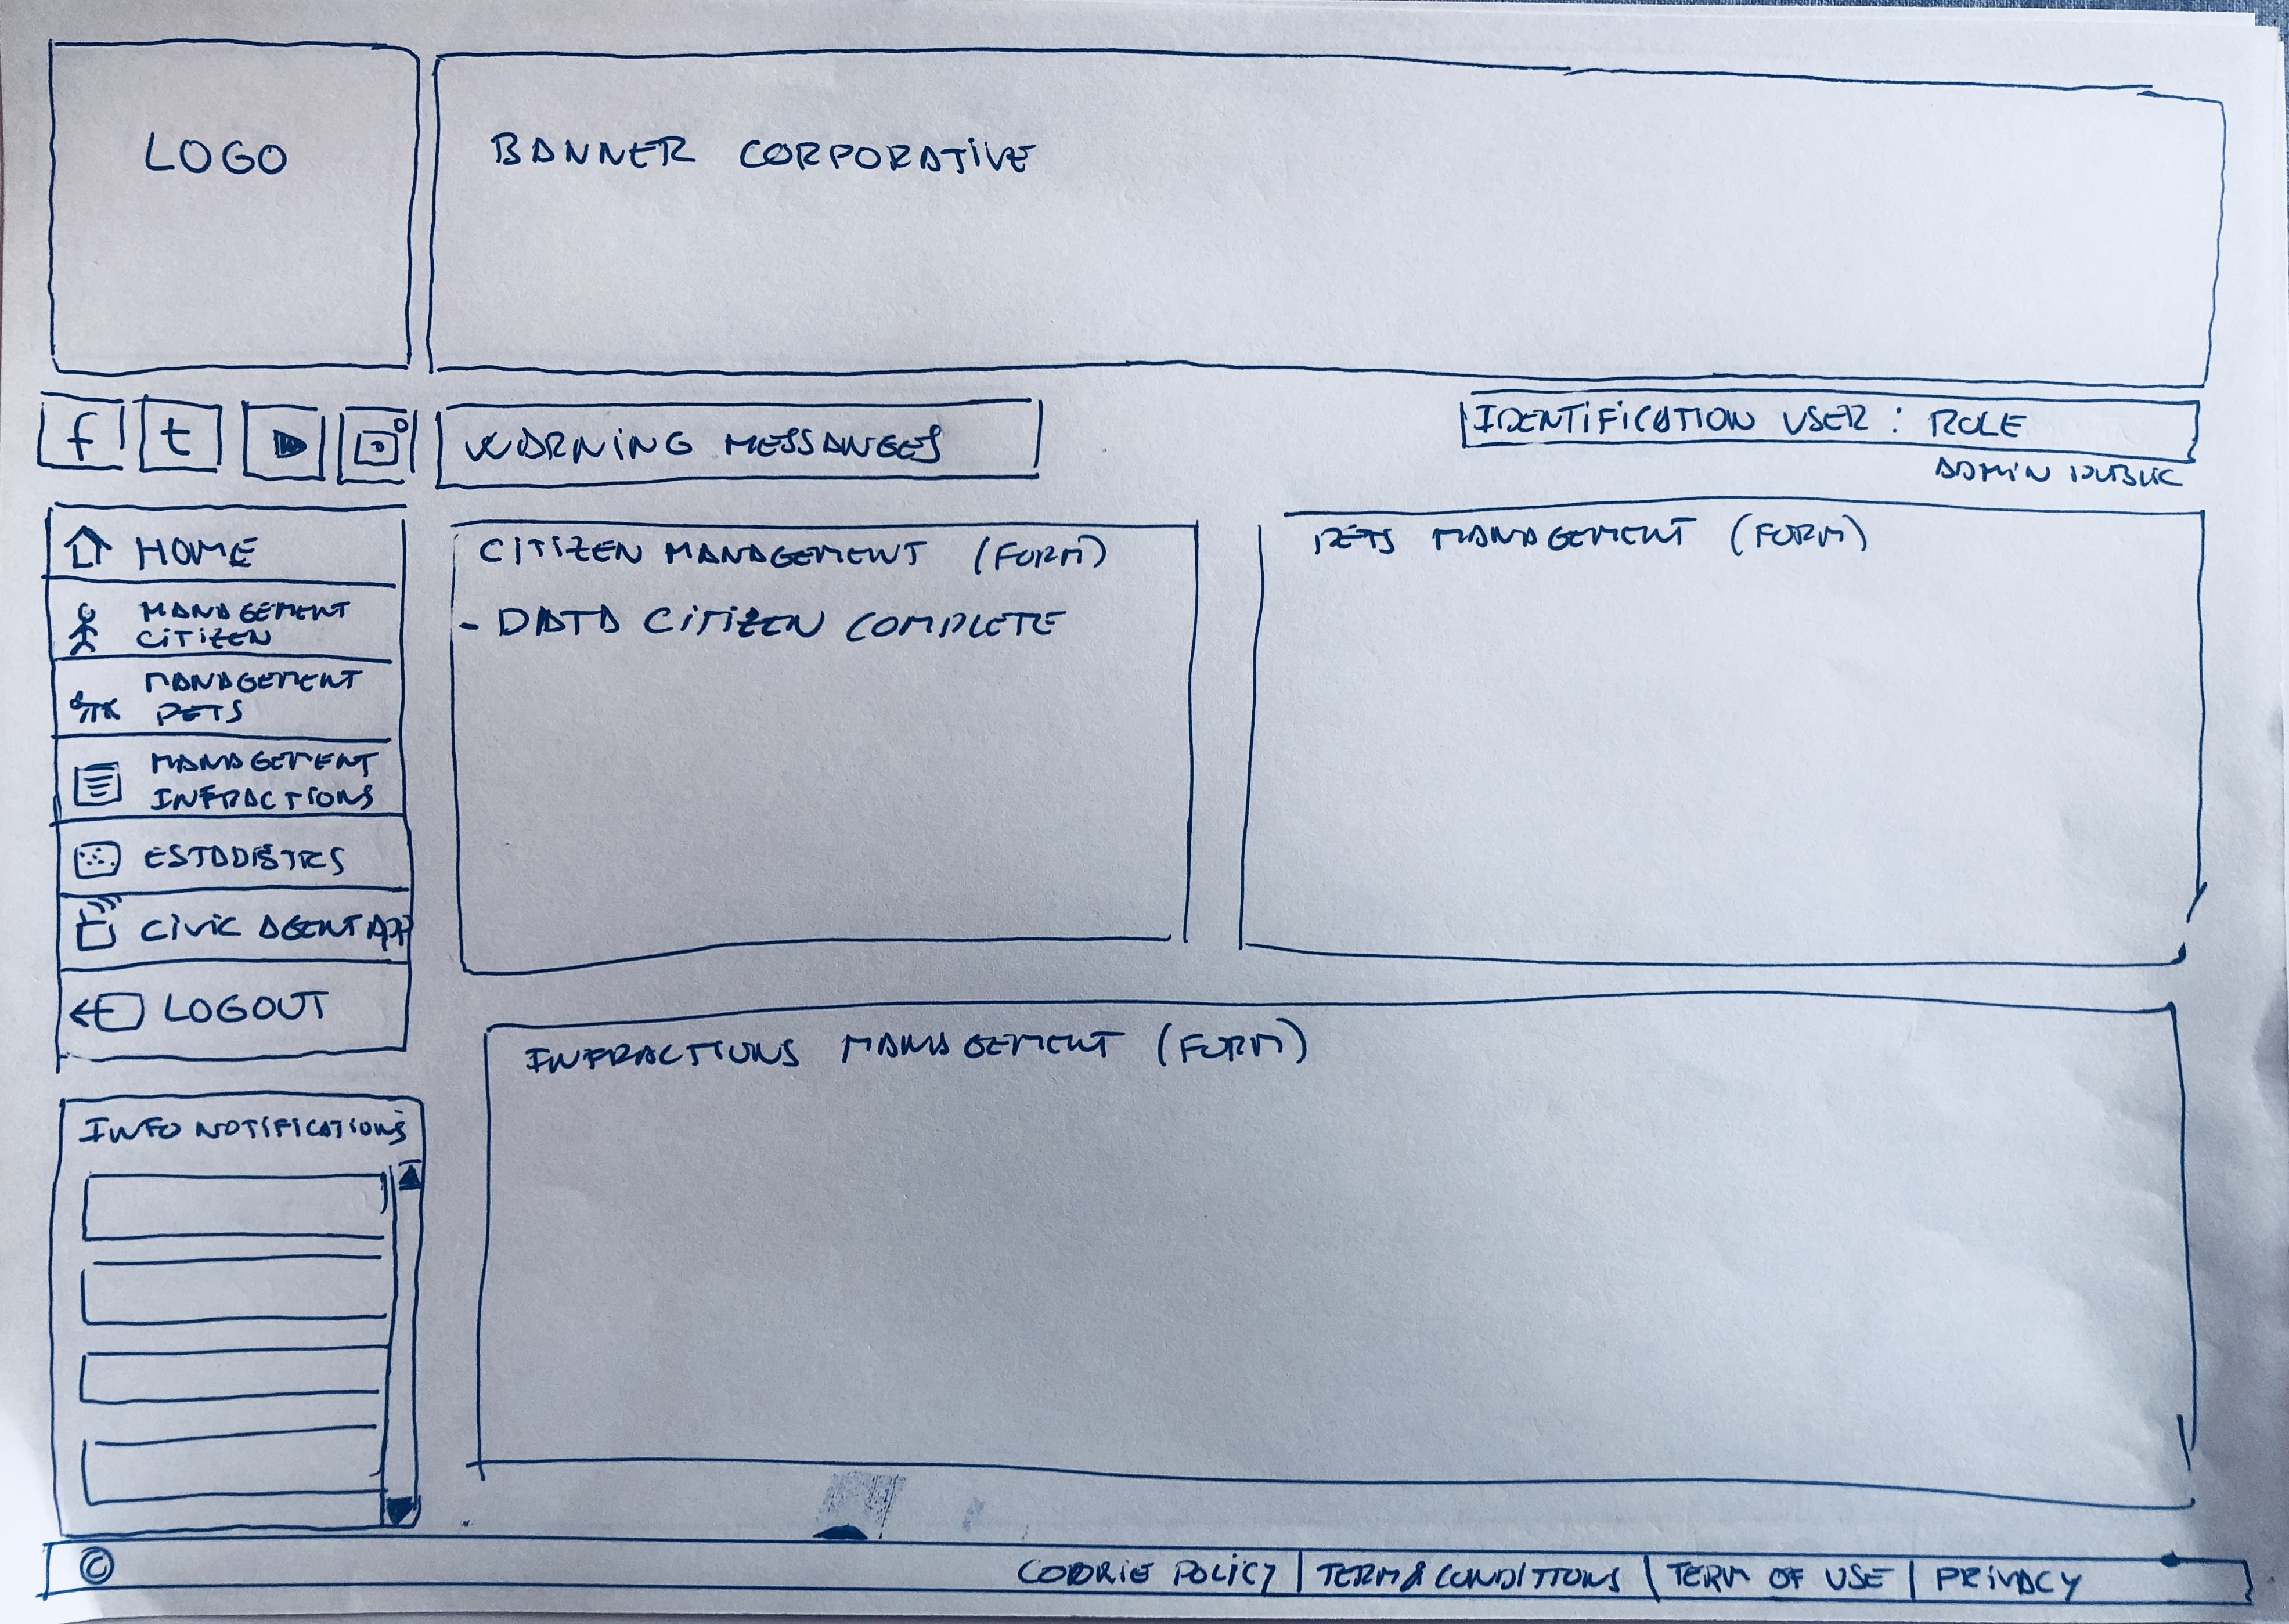 LOGO
BANNER CORPORATIVE
f t
WARNING MESSANGES
IDENTIFICATION USER : ROLE
ADMIN PUBLIC
HOME
MANAGEMENT
CITIZEN
MANAGEMENT
PETS
MANAGEMENT
INFRACTIONS
CIVIC AGENT APP
LOGOUT
CITIZEN MANAGEMENT (FORM)
- DATA CITIZEN COMPLETE
PETS MANAGEMENT (FORM)
INFRACTIONS MANAGEMENT (FORM)
INFO NOTIFICATIONS
© COOKIE POLICY | TERM & CONDITIONS | TERM OF USE | PRIVACY